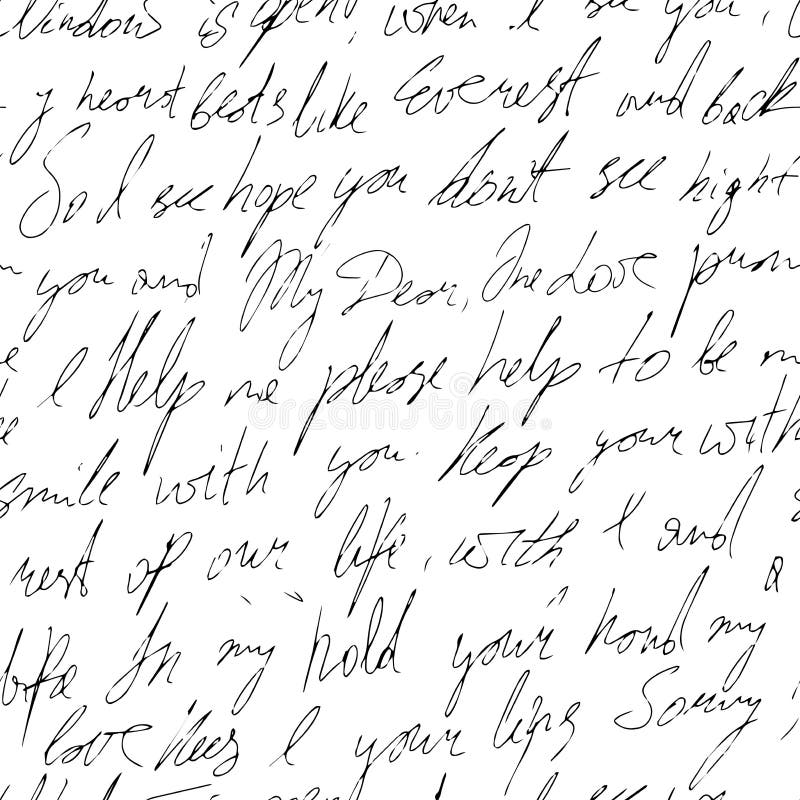 Windows is open, when I see you,
y heart beats like Everest and back
So I see hope you don't see night
you and My Dear, The Love prom
I Help me please help to be m
smile with you. Keep your with
rest of our life, with I and
life In my hold your hand my
love kees I your lips Sorry